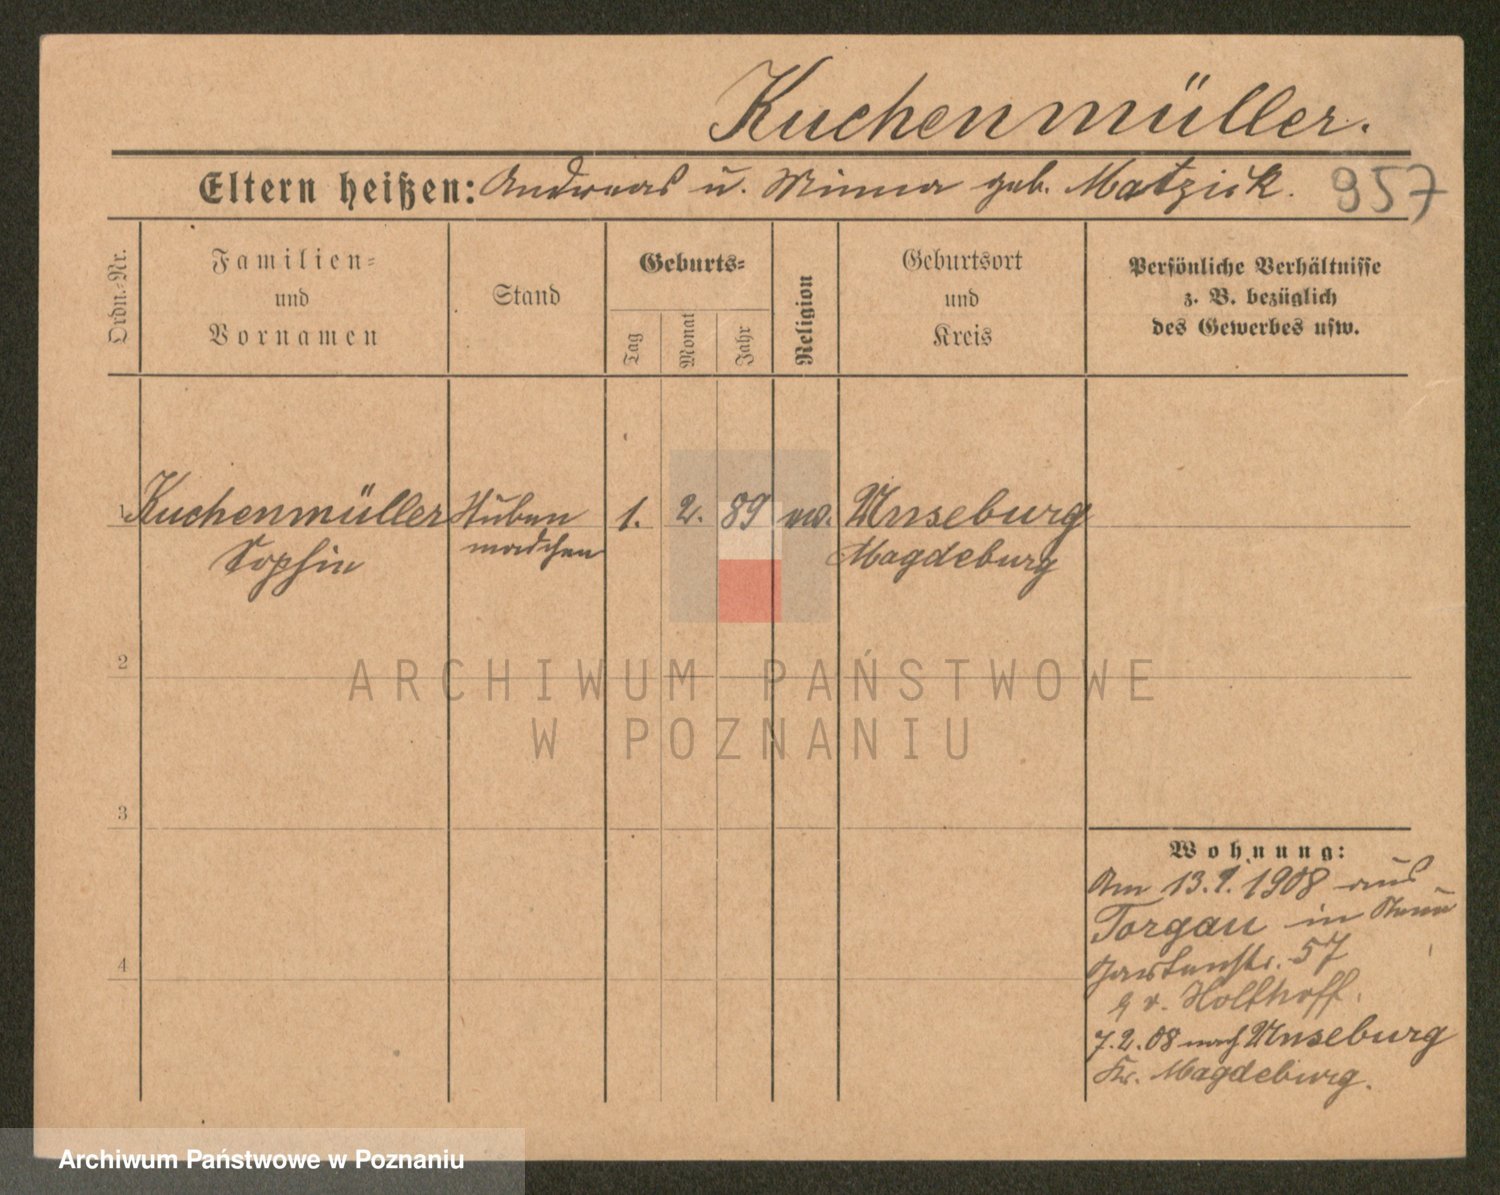 Kuchenmüller.
Eltern heißen: Andreas u. Minna geb. Matzick. 957
Ordn.-Nr.
Familien-
und
Vornamen
Stand
Geburts-
Tag
Monat
Jahr
Religion
Geburtsort
und
Kreis
Persönliche Verhältnisse
z. B. bezüglich
des Gewerbes usw.
1 Kuchenmüller Stuben 1. 2. 89 ev. Unseburg
Sophie mädchen Magdeburg
2
3
4
Wohnung:
Am 13.1.1908 aus
Torgau in
Gartenstr. 57
v. Holthoff.
7.2.08 nach Unseburg
Kr. Magdeburg.
ARCHIWUM PAŃSTWOWE
W POZNANIU
Archiwum Państwowe w Poznaniu